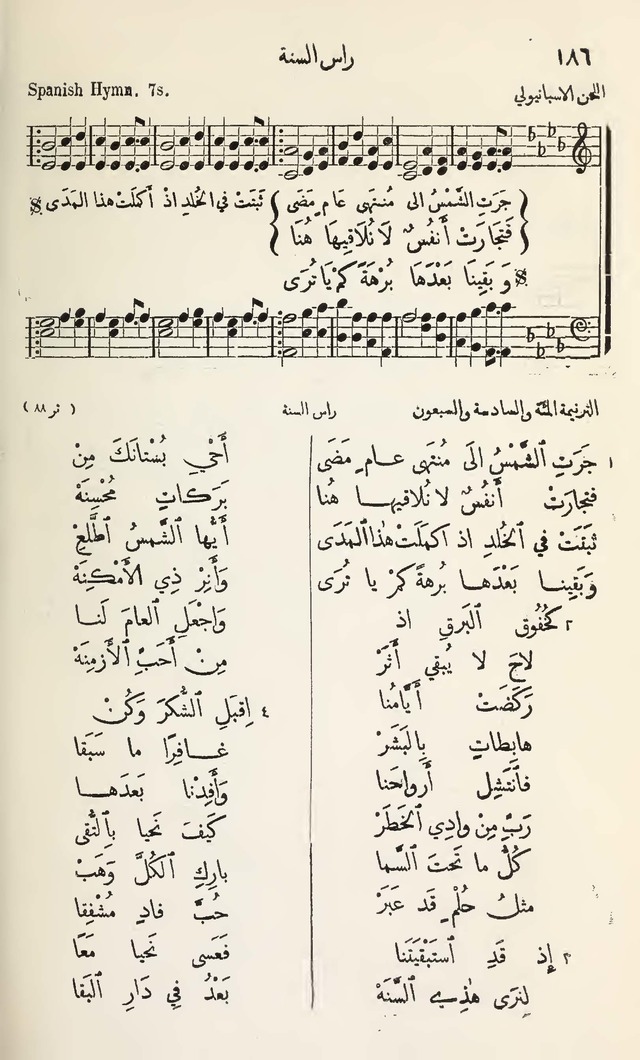 ١٨٦
راس السنة
اللحن الاسبانيولي
Spanish Hymn. 7s.
جَرَتِ الشَّمْسُ الى مُنتهَى عَام ٍ مَضَى
ثَبَتَتْ في الخُلدِ اذ أَكمَلَتْ هذا المَدَى
فَتَجارَتْ أَنفُسٌ لَا نُلَاقِيهَا هُنَا
وَ بَقِينَا بَعْدَهَا بُرْهَةً كَمْ يَا تُرَى
الترنيمة المئة والسادسة والسبعون
راس السنة
( تر ٨٨ )
١ جَرَتِ ٱلشَّمْسُ الَى مُنتَهَى عامٍ مَضَى
فتجارَتْ أَنفُسٌ لا نُلاقيها هُنا
ثبَتَتْ في ٱلخُلدِ اذ اكملَتْ هٰذا ٱلمَدَى
وَبَقِينا بَعْدَها بُرهةً كمْ يا تُرَى
٢ كخُفُوقِ ٱلبَرقِ اذ
لاحَ لا يُبقي أَثَرْ
رَكَضَتْ أَيَّامُنا
هابِطاتٍ بِٱلبَشَرْ
فٱنْتَشِل أَرواحَنا
رَبِّ مِنْ وادِي ٱلخَطَرْ
كُلُّ ما تَحتَ ٱلسَّما
مثلُ حُلْمٍ قَد عَبَرْ
٣ إِذ قَدِ ٱستَبْقَيتَنا
لِنرَى هٰذِي ٱلسَّنَهْ
أَحْيِ بُسْتانَكَ مِنْ
بَرَكاتٍ مُحْسِنَهْ
أَيُّها ٱلشَّمسُ ٱطْلَعِ
وَأَنِرْ ذِي ٱلأَمْكِنَهْ
وَاجْعَلِ ٱلعامَ لَنا
مِنْ أَحَبِّ ٱلأَزمِنَهْ
٤ اِقبَلِ ٱلشُّكرَ وَكُنْ
غافِرًا ما سَبَقا
وَأَفِدْنا بَعدَها
كَيفَ نَحيا بِٱلتُّقَى
بارِكِ ٱلكُلَّ وَهَبْ
حُبَّ فادٍ مُشْفِقا
فَعَسَى نَحيا مَعًا
بَعْدُ فِي دَارِ ٱلبَقا